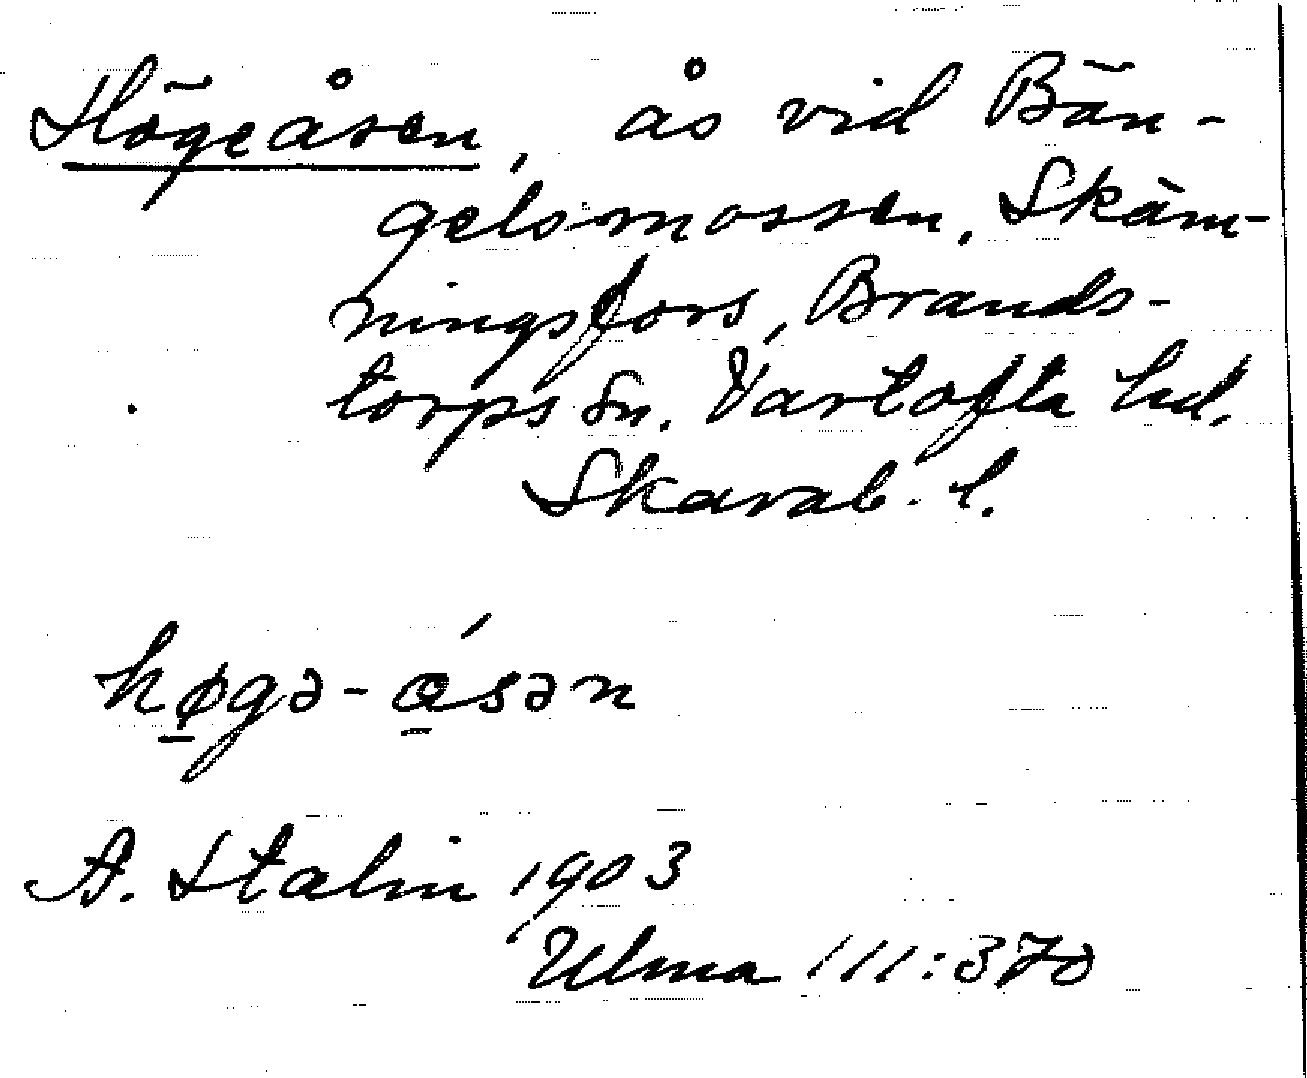 Högeåsen, ås vid Bän-
gelsmossen, Skäm-
ningsfors, Brands-
torps sn. Vartofta hd.
Skarab. l.
hø̱gə-ɑ̱́sən
A. Stalin 1903
Ulma 111:370